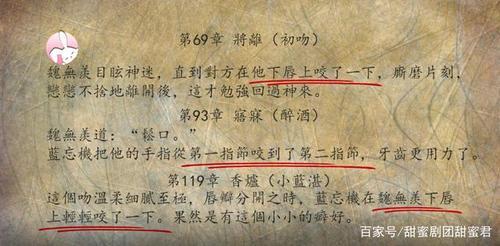 第69章 將離（初吻）
魏無羨目眩神迷，直到對方在他下唇上咬了一下，廝磨片刻，
戀戀不捨地離開後，這才勉強回過神來。
第93章 寤寐（醉酒）
魏無羨道：“鬆口。”
藍忘機把他的手指從第一指節咬到了第二指節，牙齒更用力了。
第119章 香爐（小藍湛）
這個吻溫柔細膩至極，唇瓣分開之時，藍忘機在魏無羨下唇
上輕輕咬了一下。果然是有這個小小的癖好。
百家号/甜蜜剧团甜蜜君